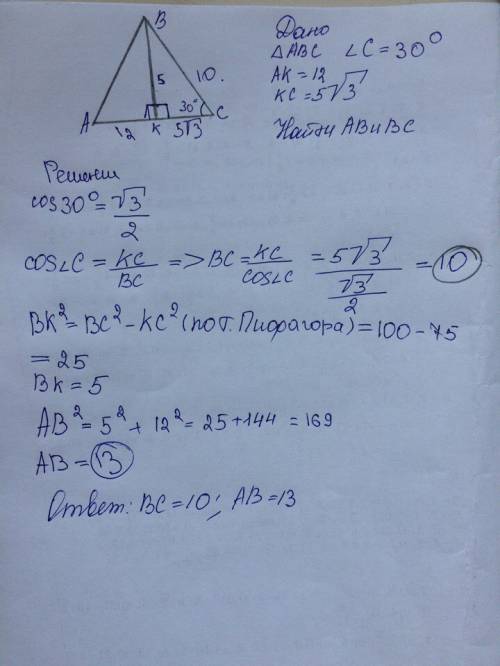 B
5
10.
A
12
K
30°
5√3
C
Дано
△ABC ∠C = 30°
AK = 12
KC = 5√3
Найти AB и BC
Решение
cos30° = √3/2
cos∠C = KC/BC => BC = KC/cos∠C = 5√3/(√3/2) = 10
BK² = BC² - KC² (по т. Пифагора) = 100 - 75
= 25
BK = 5
AB² = 5² + 12² = 25 + 144 = 169
AB = 13
Ответ: BC = 10; AB = 13